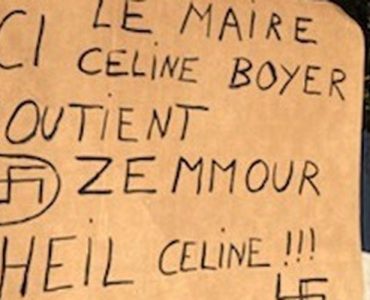 CI LE MAIRE
CELINE BOYER
OUTIENT
ZEMMOUR
HEIL CELINE !!!